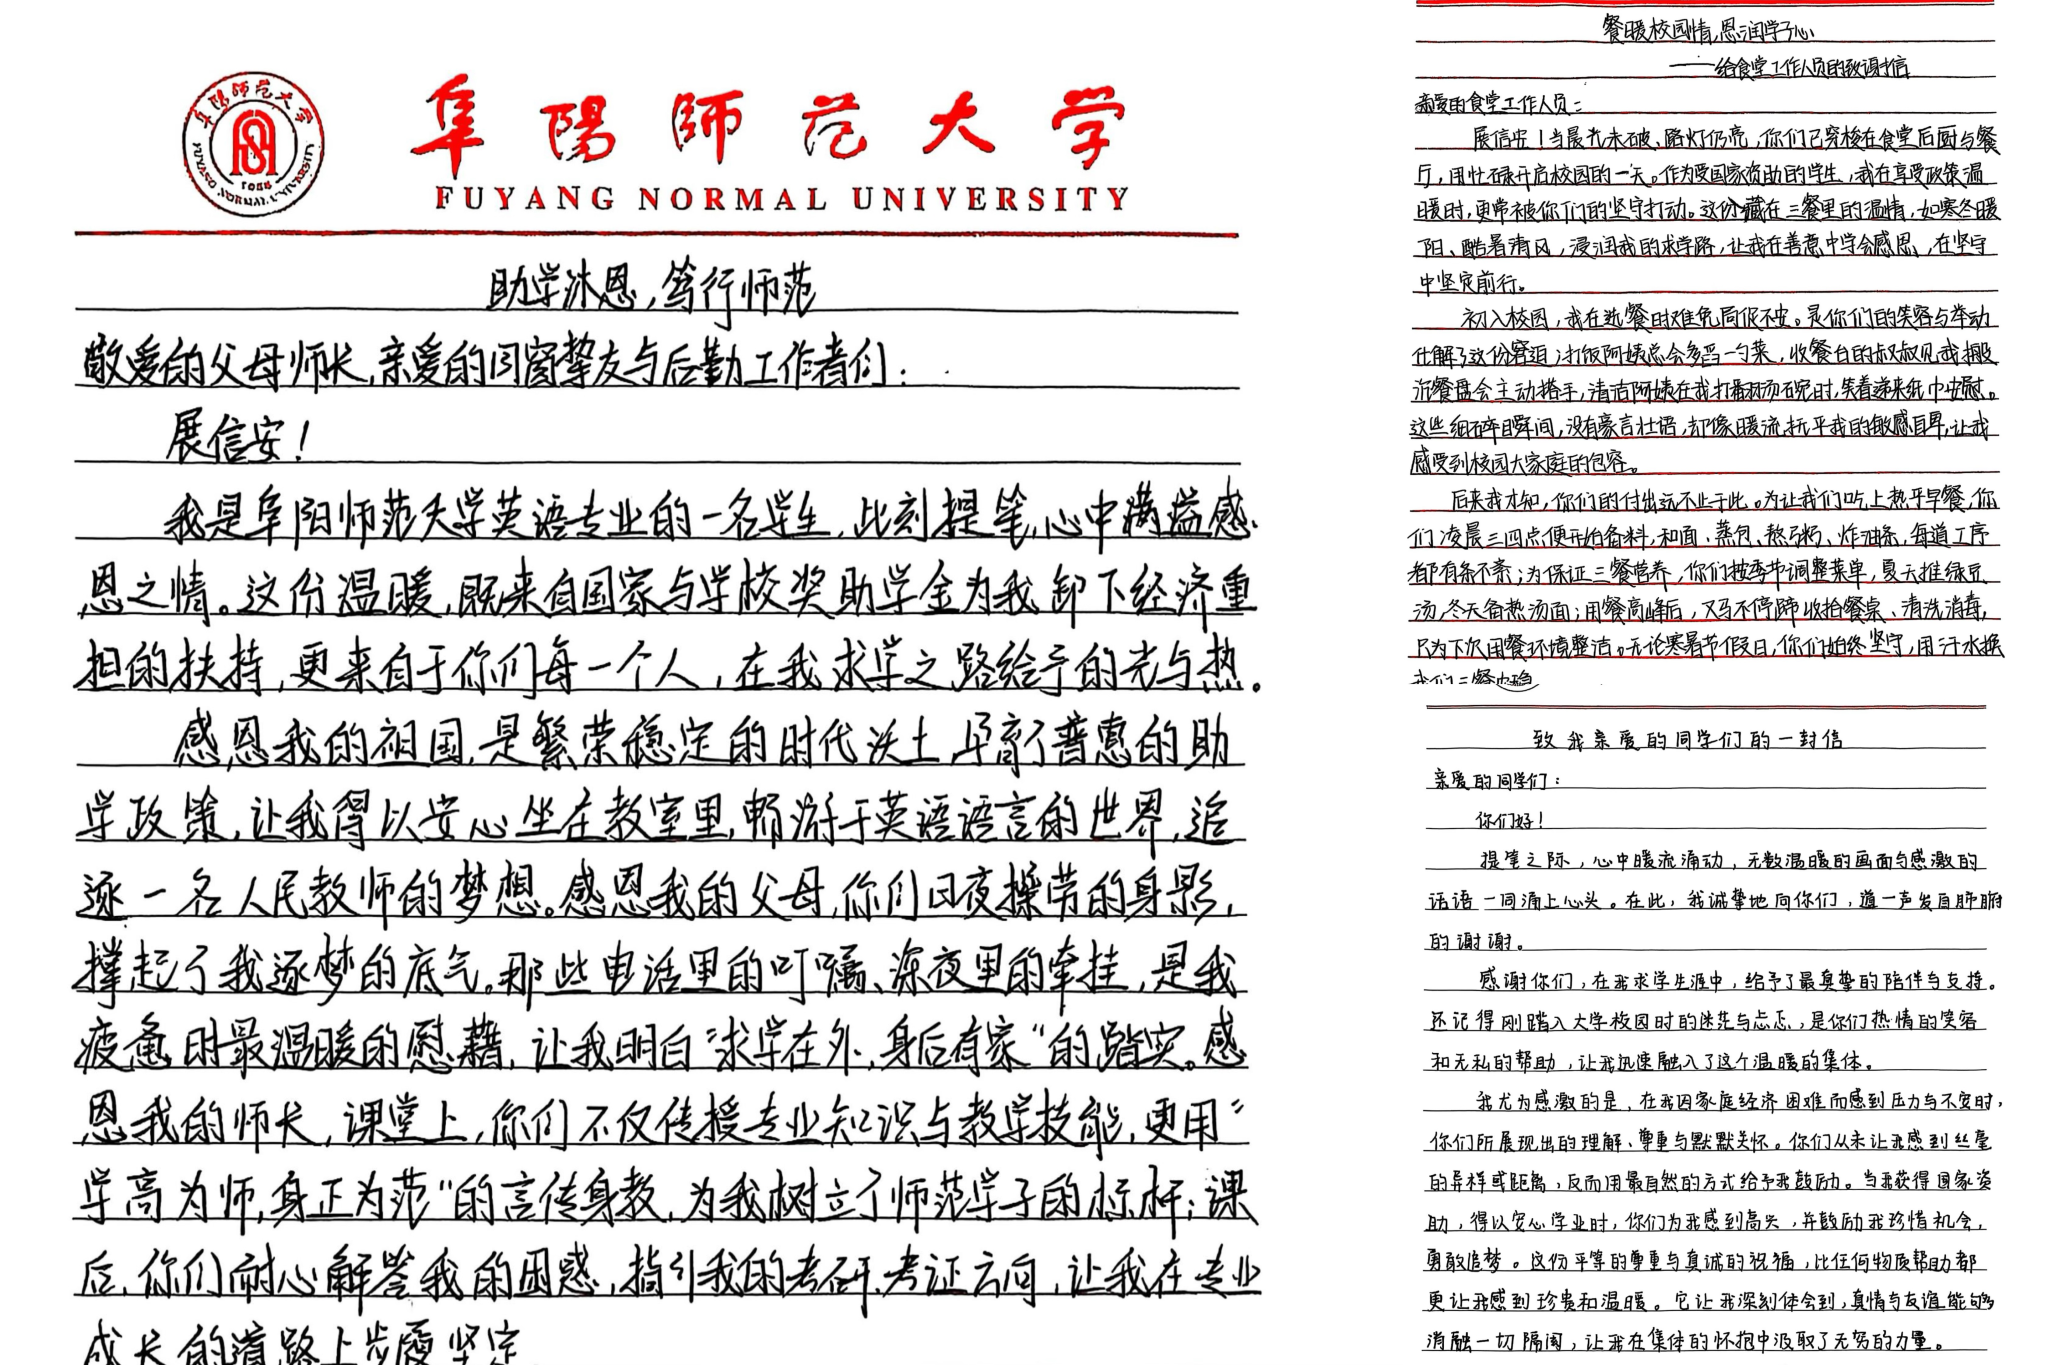 阜陽師范大学
FUYANG NORMAL UNIVERSITY
阜陽師范大学
FUYANG NORMAL UNIVERSITY
助学沐恩，笃行师范
敬爱的父母师长，亲爱的同窗挚友与后勤工作者们：
展信安！
我是阜阳师范大学英语专业的一名学生，此刻提笔，心中满溢感
恩之情。这份温暖，既来自国家与学校奖助学金为我卸下经济重
担的扶持，更来自于你们每一个人，在我求学之路给予的光与热。
感恩我的祖国，是繁荣稳定的时代沃土孕育了普惠的助
学政策，让我得以安心坐在教室里，畅游于英语语言的世界，追
逐一名人民教师的梦想。感恩我的父母，你们日夜操劳的身影，
撑起了我逐梦的底气。那些电话里的叮嘱、深夜里的牵挂，是我
疲惫时最温暖的慰藉，让我明白“求学在外，身后有家”的踏实。感
恩我的师长，课堂上，你们不仅传授专业知识与教学技能，更用“
学高为师，身正为范”的言传身教，为我树立了师范学子的标杆；课
后，你们耐心解答我的困惑，指引我的考研、考证方向，让我在专业
成长的道路上步履坚定
餐暖校园情，恩润学子心
——给食堂工作人员的致谢信
亲爱的食堂工作人员：
展信安！当晨光未破、路灯仍亮，你们已穿梭在食堂后厨与餐
厅，用忙碌开启校园的一天。作为受国家资助的学生，我在享受政策温
暖时，更常被你们的坚守打动。这份藏在三餐里的温情，如寒冬暖
阳、酷暑清风，浸润我的求学路，让我在善意中学会感恩，在坚守
中坚定前行。
初入校园，我在选餐时难免局促不安。是你们的笑容与举动
化解了这份窘迫：打饭阿姨总会多舀一勺菜，收餐台的叔叔见我搬
沉餐盘会主动搭手，清洁阿姨在我打翻汤碗时，笑着递来纸巾安慰。
这些细碎瞬间，没有豪言壮语，却像暖流抚平我的敏感自卑，让我
感受到校园大家庭的包容。
后来我才知，你们的付出远不止于此。为让我们吃上热乎早餐，你
们凌晨三四点便开始备料，和面、蒸包、熬粥、炸油条，每道工序
都有条不紊；为保证三餐营养，你们按季节调整菜单，夏天推绿豆
汤，冬天备热汤面；用餐高峰后，又马不停蹄收拾餐桌、清洗消毒，
只为下次用餐环境整洁。无论寒暑节假日，你们始终坚守，用汗水换
我们三餐安稳
致我亲爱的同学们的一封信
亲爱的同学们：
你们好！
提笔之际，心中暖流涌动，无数温暖的画面与感激的
话语一同涌上心头。在此，我诚挚地向你们，道一声发自肺腑
的谢谢。
感谢你们，在我求学生涯中，给予了最真挚的陪伴与支持。
还记得刚踏入大学校园时的迷茫与忐忑，是你们热情的笑容
和无私的帮助，让我迅速融入了这个温暖的集体。
我尤为感激的是，在我因家庭经济困难而感到压力与不安时，
你们所展现出的理解、尊重与默默关怀。你们从未让我感到丝毫
的异样或距离，反而用最自然的方式给予我鼓励。当我获得国家资
助，得以安心学业时，你们为我感到高兴，并鼓励我珍惜机会，
勇敢追梦。这份平等的尊重与真诚的祝福，比任何物质帮助都
更让我感到珍贵和温暖。它让我深刻体会到，真情与友谊能够
消融一切隔阂，让我在集体的怀抱中汲取了无穷的力量。